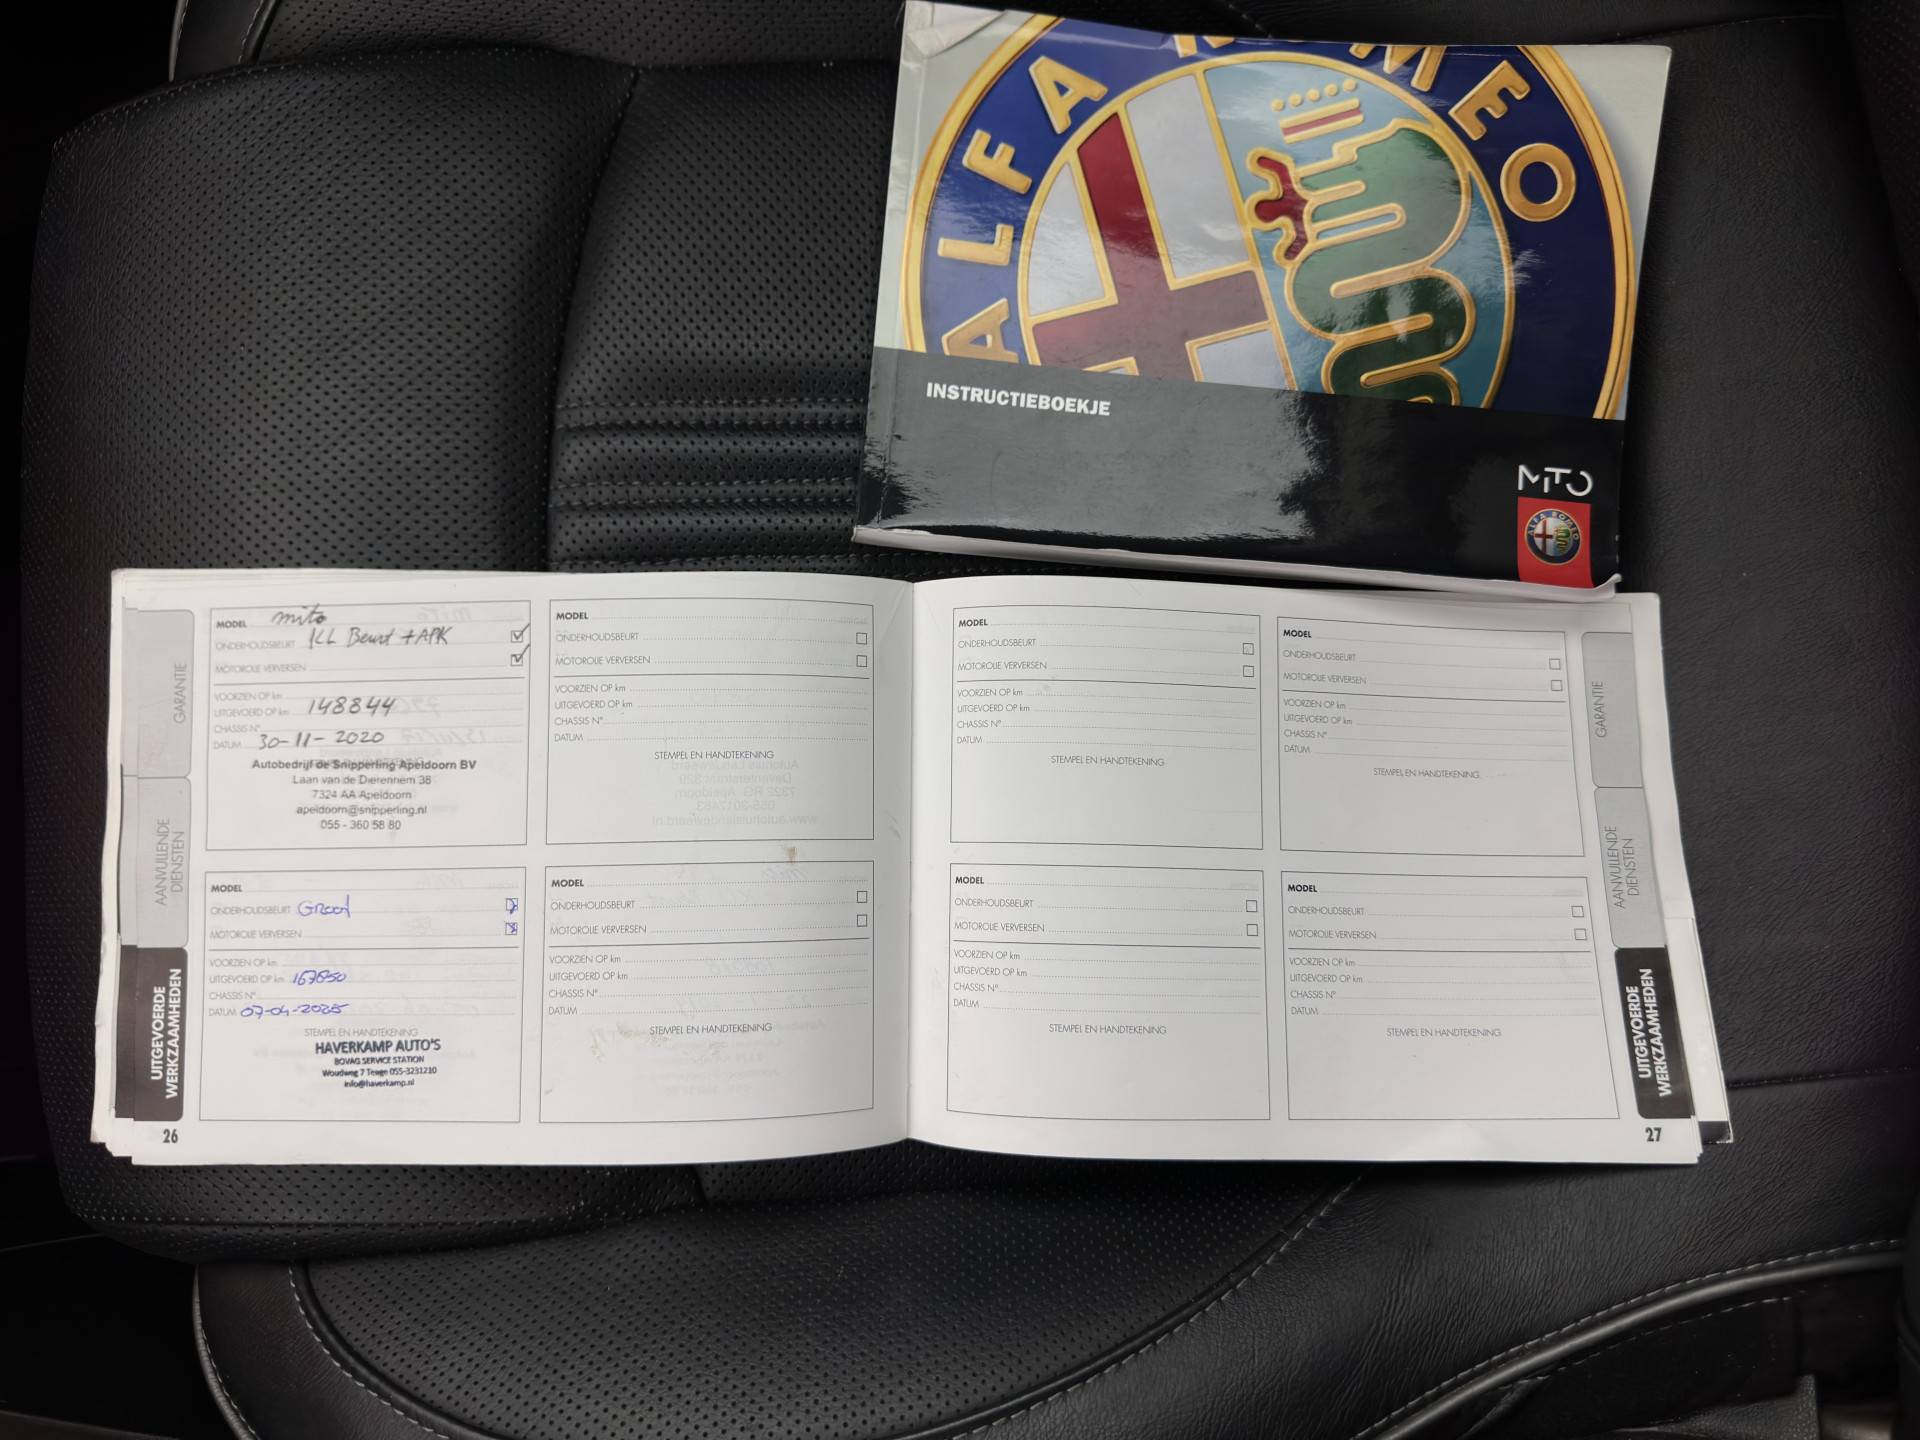 ALFA ROMEO
INSTRUCTIEBOEKJE
MiTO
ALFA ROMEO
GARANTIE
AANVULLENDE
DIENSTEN
UITGEVOERDE
WERKZAAMHEDEN
MODEL mito
ONDERHOUDSBEURT KLL Beurt + APK
MOTOROLIE VERVERSEN
VOORZIEN OP km
UITGEVOERD OP km 148844
CHASSIS N°
DATUM 30-11-2020
Autobedrijf de Snipperling Apeldoorn BV
Laan van de Dierenriem 38
7324 AA Apeldoorn
apeldoorn@snipperling.nl
055 - 360 58 80
MODEL
ONDERHOUDSBEURT
MOTOROLIE VERVERSEN
VOORZIEN OP km
UITGEVOERD OP km
CHASSIS N°
DATUM
STEMPEL EN HANDTEKENING
MODEL
ONDERHOUDSBEURT Groot
MOTOROLIE VERVERSEN
VOORZIEN OP km
UITGEVOERD OP km 167850
CHASSIS N°
DATUM 07-04-2025
STEMPEL EN HANDTEKENING
HAVERKAMP AUTO'S
BOVAG SERVICE STATION
Woudweg 7 Teuge 055-3231210
info@haverkamp.nl
MODEL
ONDERHOUDSBEURT
MOTOROLIE VERVERSEN
VOORZIEN OP km
UITGEVOERD OP km
CHASSIS N°
DATUM
STEMPEL EN HANDTEKENING
26
MODEL
ONDERHOUDSBEURT
MOTOROLIE VERVERSEN
VOORZIEN OP km
UITGEVOERD OP km
CHASSIS N°
DATUM
STEMPEL EN HANDTEKENING
MODEL
ONDERHOUDSBEURT
MOTOROLIE VERVERSEN
VOORZIEN OP km
UITGEVOERD OP km
CHASSIS N°
DATUM
STEMPEL EN HANDTEKENING
MODEL
ONDERHOUDSBEURT
MOTOROLIE VERVERSEN
VOORZIEN OP km
UITGEVOERD OP km
CHASSIS N°
DATUM
STEMPEL EN HANDTEKENING
MODEL
ONDERHOUDSBEURT
MOTOROLIE VERVERSEN
VOORZIEN OP km
UITGEVOERD OP km
CHASSIS N°
DATUM
STEMPEL EN HANDTEKENING
GARANTIE
AANVULLENDE
DIENSTEN
UITGEVOERDE
WERKZAAMHEDEN
27